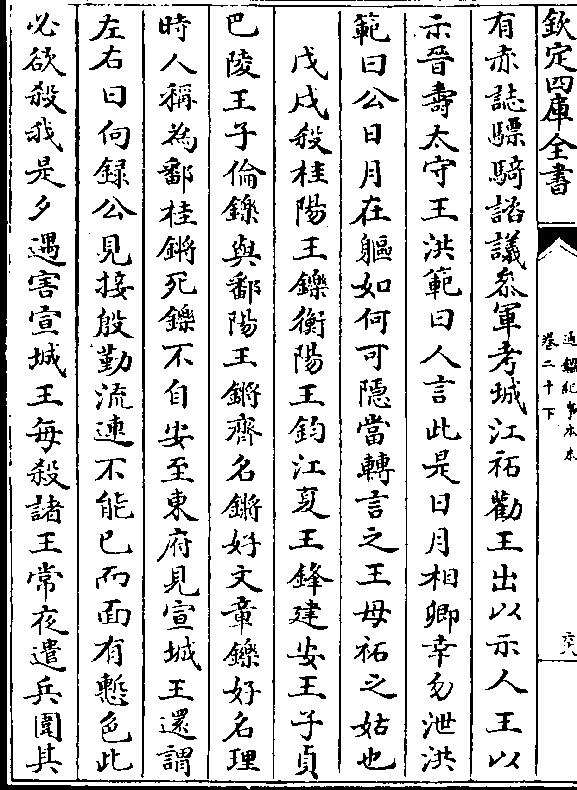 欽定四庫全書
通鑑紀事本末
卷二十下
六九
有赤誌驃騎諮議叅軍考城江祏勸王出以示人王以
示晉壽太守王洪範曰人言此是日月相卿幸勿泄洪
範曰公日月在軀如何可隠當轉言之王母祏之姑也
戊戌殺桂陽王鑠衡陽王鈞江夏王鋒建安王子貞
巴陵王子倫鑠與鄱陽王鏘齊名鏘好文章鑠好名理
時人稱為鄱桂鏘死鑠不自安至東府見宣城王還謂
左右曰向録公見接殷勤流連不能已而面有慙色此
必欲殺我是夕遇害宣城王毎殺諸王常夜遣兵圍其